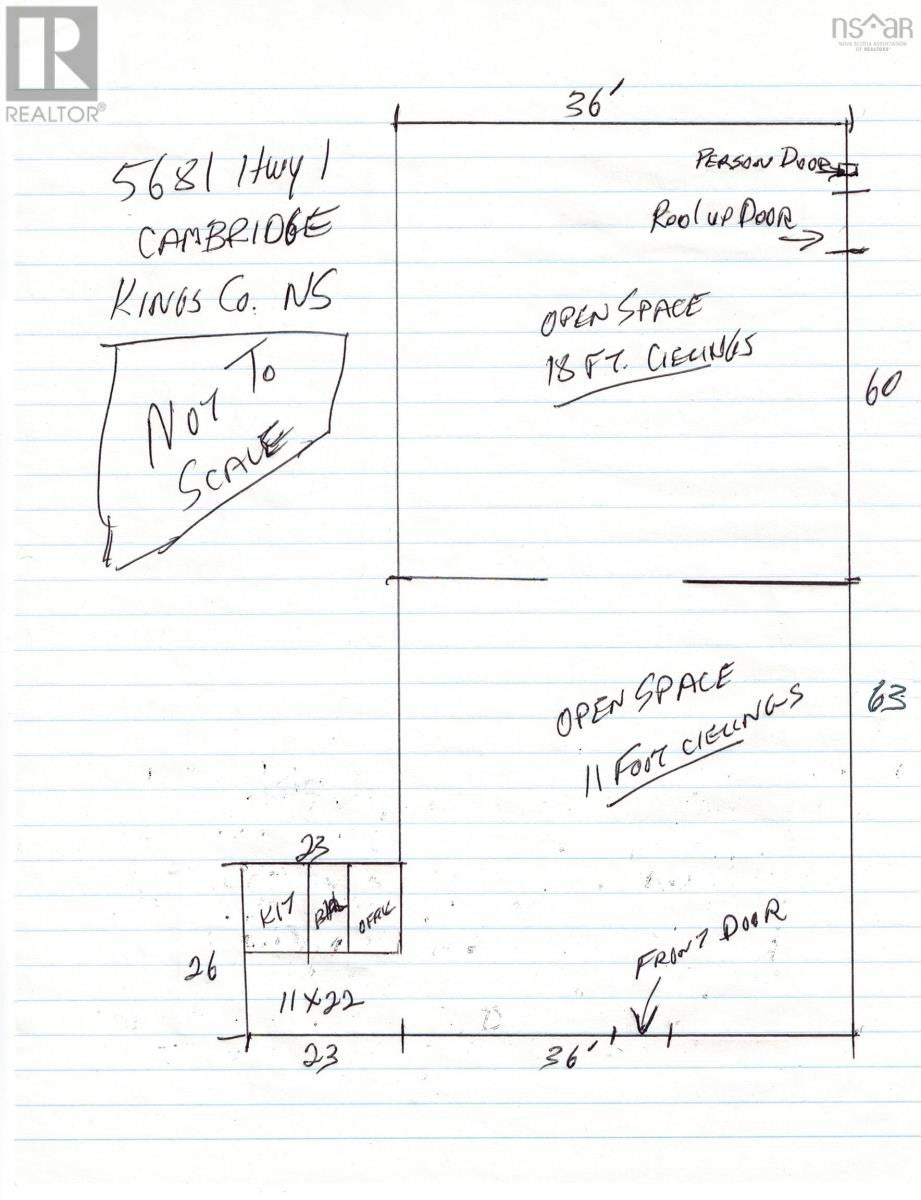 REALTOR®
nsar
NOVA SCOTIA ASSOCIATION
OF REALTORS®
36'
5681 Hwy 1
CAMBRIDGE
KINGS Co. NS
NOT TO
SCALE
PERSON DOOR
Rool up DOOR
OPEN SPACE
18 FT. CIELINGS
60
OPEN SPACE
11 FOOT CIELINGS
63
23
KIT
OFFIC
26
11 x 22
FRONT DOOR
23
36'